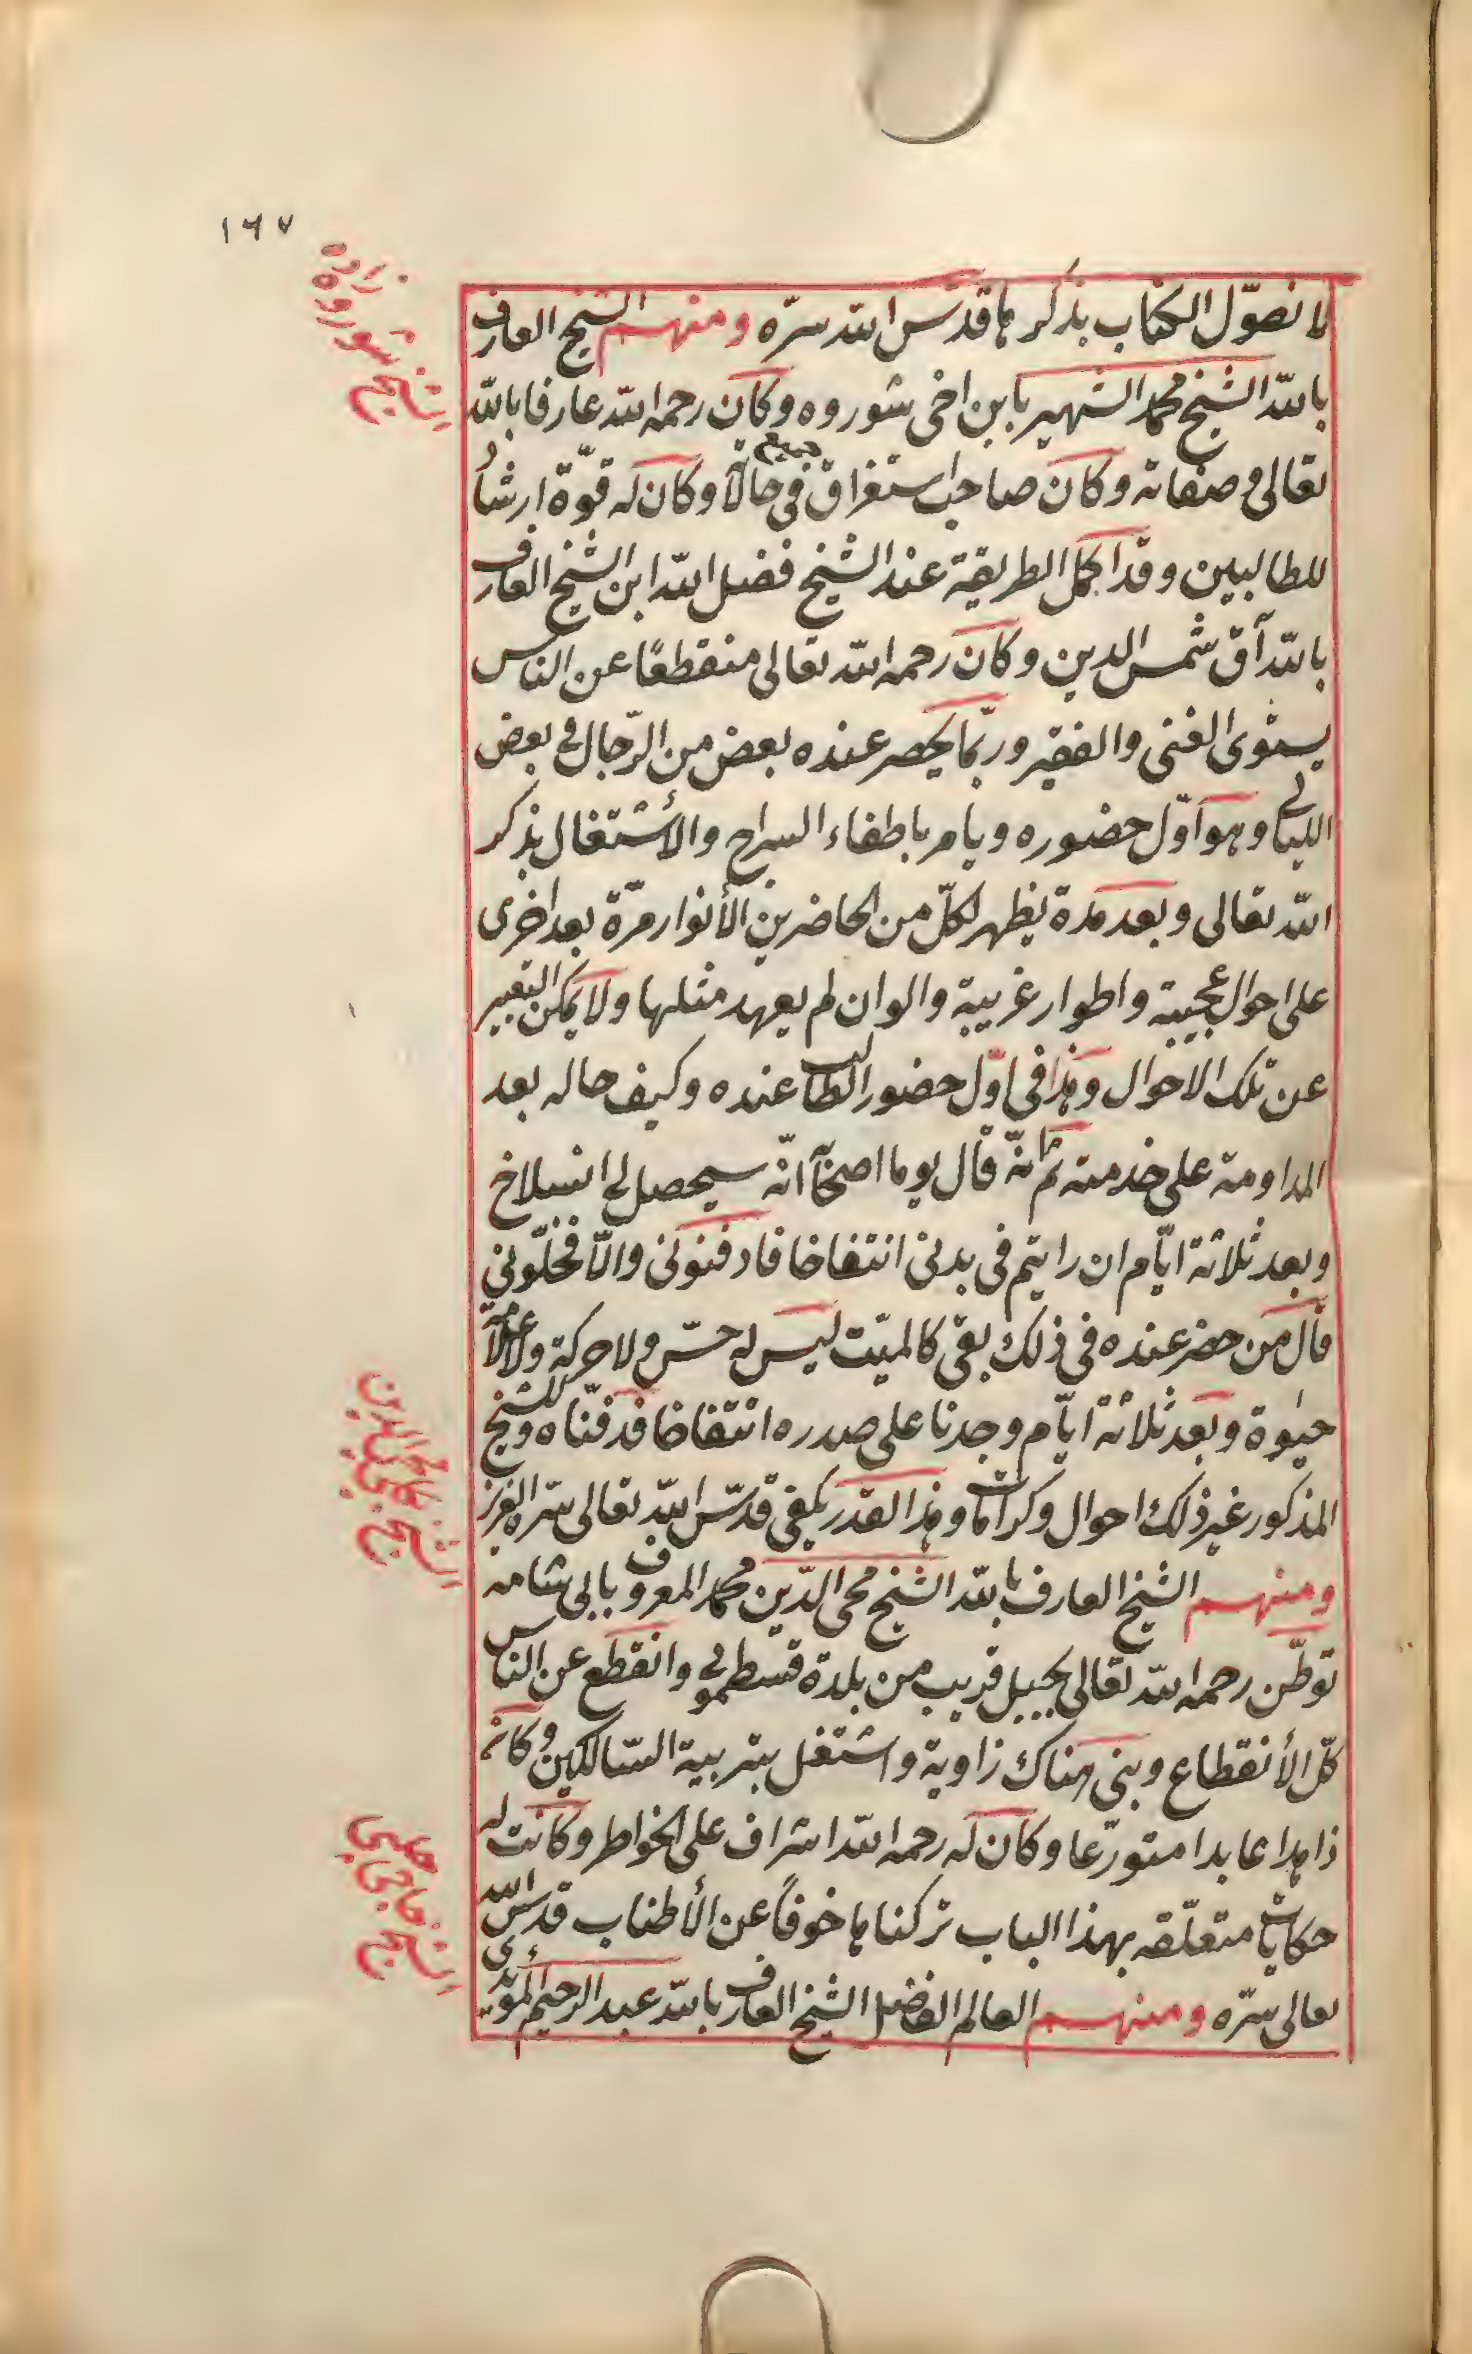 ١٦٧
لا نصوّل الكتاب بذكرها قدّس الله سرّه ومنهم الشيخ العارف
بالله الشيخ محمد الشهير بابن اخى شوروه وكان رحمه الله عارفا بالله
تعالى و صفاته وكان صاحب استغراق فى جميع حالاته وكان له قوّة ارشاد
للطالبين وقد اكمل الطريقة عند الشيخ فضل الله ابن الشيخ العارف
بالله آق شمس الدين وكان رحمه الله تعالى منقطعًا عن الناس
يستوى الغنى والفقير وربّما يحضر عنده بعض من الرّجال فى بعض
الليالى وهو اوّل حضوره ويامر باطفاء السراج والأشتغال بذكر
الله تعالى وبعد مدة يظهر لكلّ من الحاضرين الأنوار مرّة بعد اخرى
على احوال عجيبة واطوار غريبة والوان لم يعهد مثلها ولا يمكن التعبير
عن تلك الاحوال وهذا فى اوّل حضور الطالب عنده وكيف حاله بعد
المداومة على خدمته ثم انّه قال يوما اصحابه انّه سيحصل لى انسلاخ
وبعد ثلاثة ايّام ان رايتم فى بدنى انتفاخا فادفنونى والّا فخلّونى
قال من حضر عنده فى ذلك بقى كالميّت ليس له حسّ ولا حركة ولا علامة
حيوة وبعد ثلاثة ايّام وجدنا على صدره انتفاخا فدفنّاه وللشيخ
المذكور غير ذلك احوال وكرامات وهذا القدر يكفى قدّس الله تعالى سرّه العزيز
ومنهم الشيخ العارف بالله الشيخ محى الدّين محمد المعروف بابى شامه
توطّن رحمه الله تعالى بجبل قريب من بلدة قسطمونى وانقطع عن الناس
كلّ الأنقطاع وبنى هناك زاوية واشتغل بتربية السّالكين وكان
زاهدا عابدا متورّعا وكان له رحمه الله اشراف على الخواطر وكانت له
حكايات متعلّقه بهذا الباب تركناها خوفاً عن الأطناب قدّس الله
تعالى سرّه ومنهم العالم الفاضل الشيخ العارف بالله عبد الرحيم المؤيّدى
الشيخ شوروه زاده
الشيخ محى الدين
الشيخ حاجى چلبى